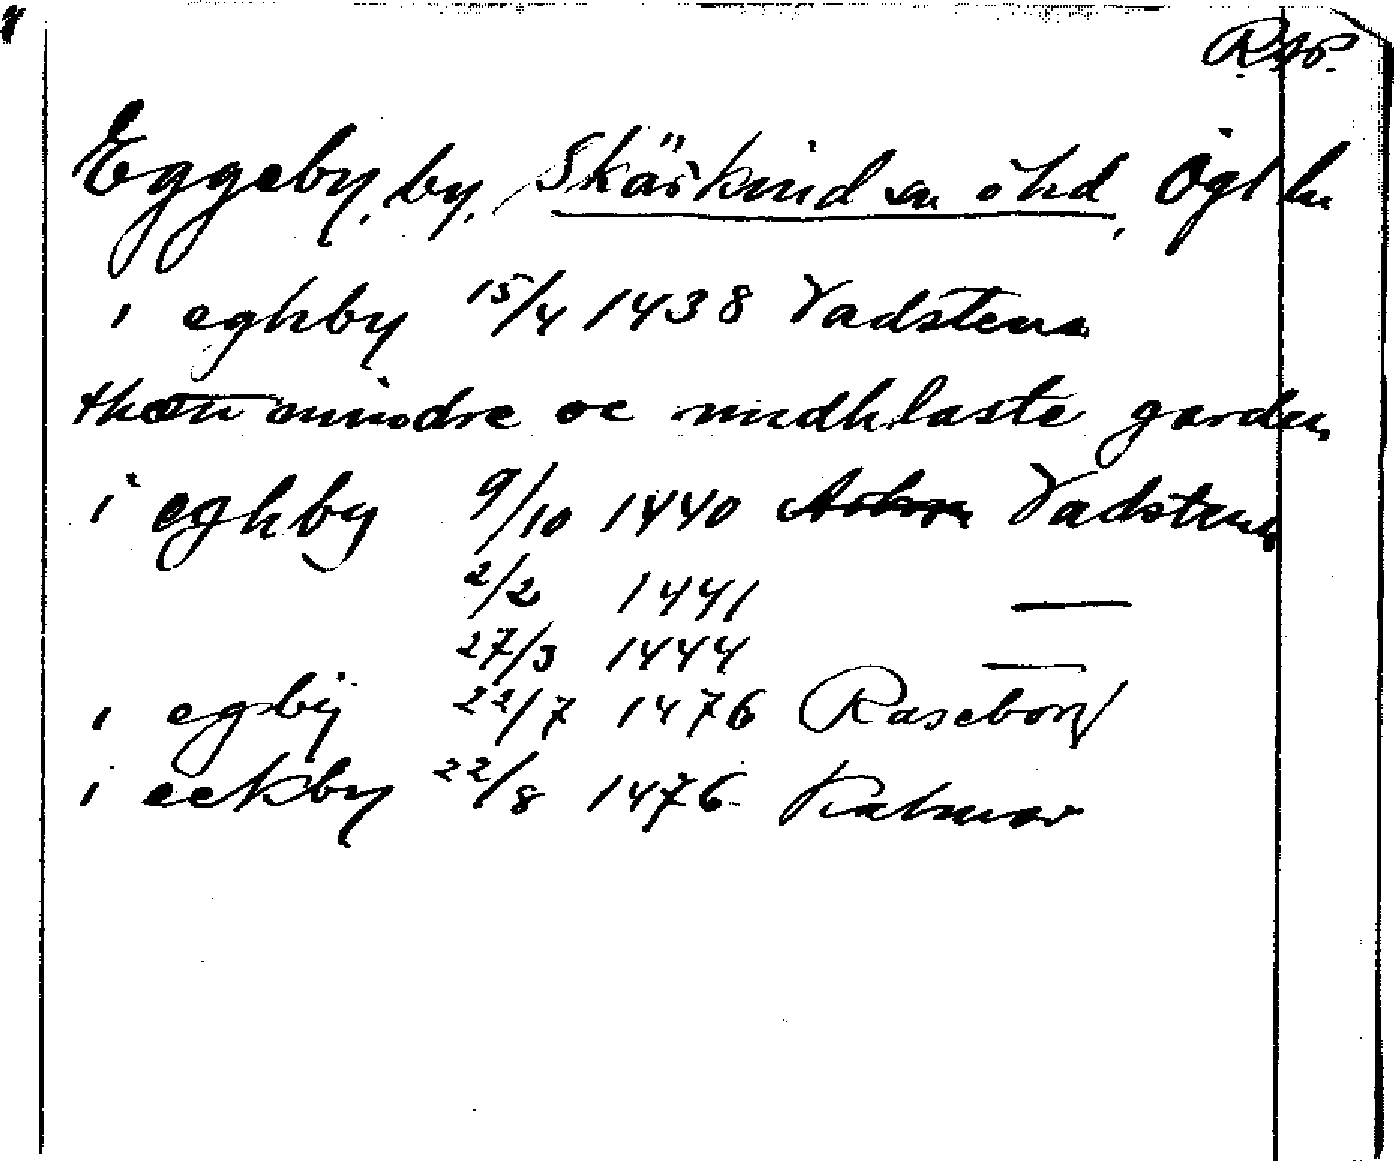 R.Ap.
Eggeby, by, Skärkind sn ö hd, Ögl ln
i eghby 15/4 1438 Vadstena
thæn mindre oc nædhlaste garden
i eghby 9/10 1440 Vadstena
2/2 1441 —
27/3 1444 —
i egbÿ 22/7 1476 Raseborg
i eekby 22/8 1476 Kalmar